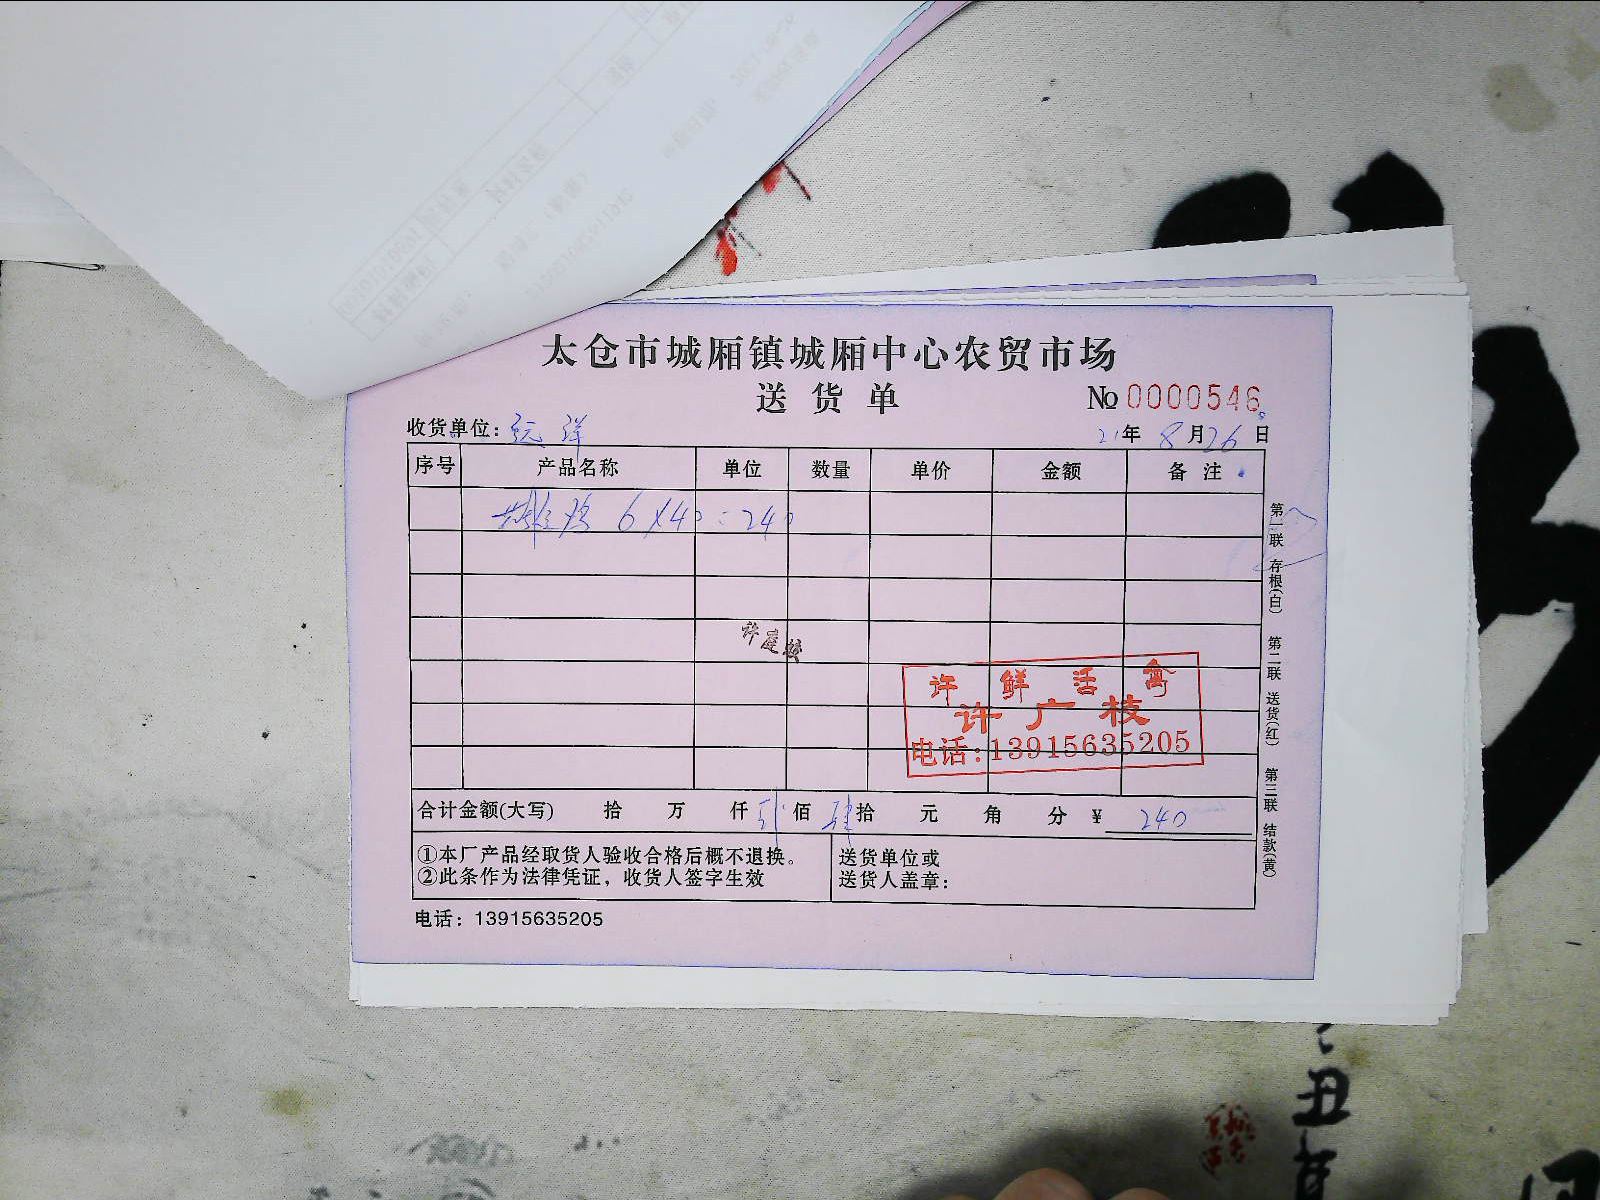 太仓市城厢镇城厢中心农贸市场
送货单
№ 0000546
收货单位：
21年 8月26日
序号 产品名称 单位 数量 单价 金额 备注
6×40=240
许
许鲜活禽
许广枝
电话:13915635205
合计金额(大写) 拾 万 仟 佰 肆拾 元 角 分 ¥ 240
①本厂产品经取货人验收合格后概不退换。
②此条作为法律凭证，收货人签字生效
送货单位或
送货人盖章：
电话：13915635205
第一联 存根(白) 第二联 送货(红) 第三联 结款(黄)
丑